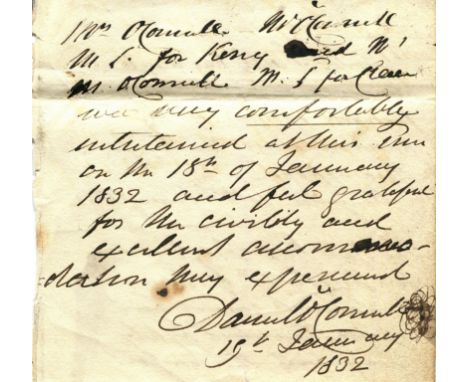 Mrs O'Connell Mr O'Connell
M P. for Kerry and Mr
M. O'Connell M. P for Clare
was very comfortably
entertained at this inn
on the 18th of January
1832 and feel grateful
for the civility and
excellent accommo-
dation they experienced
Daniel O'Connell
19th January
1832